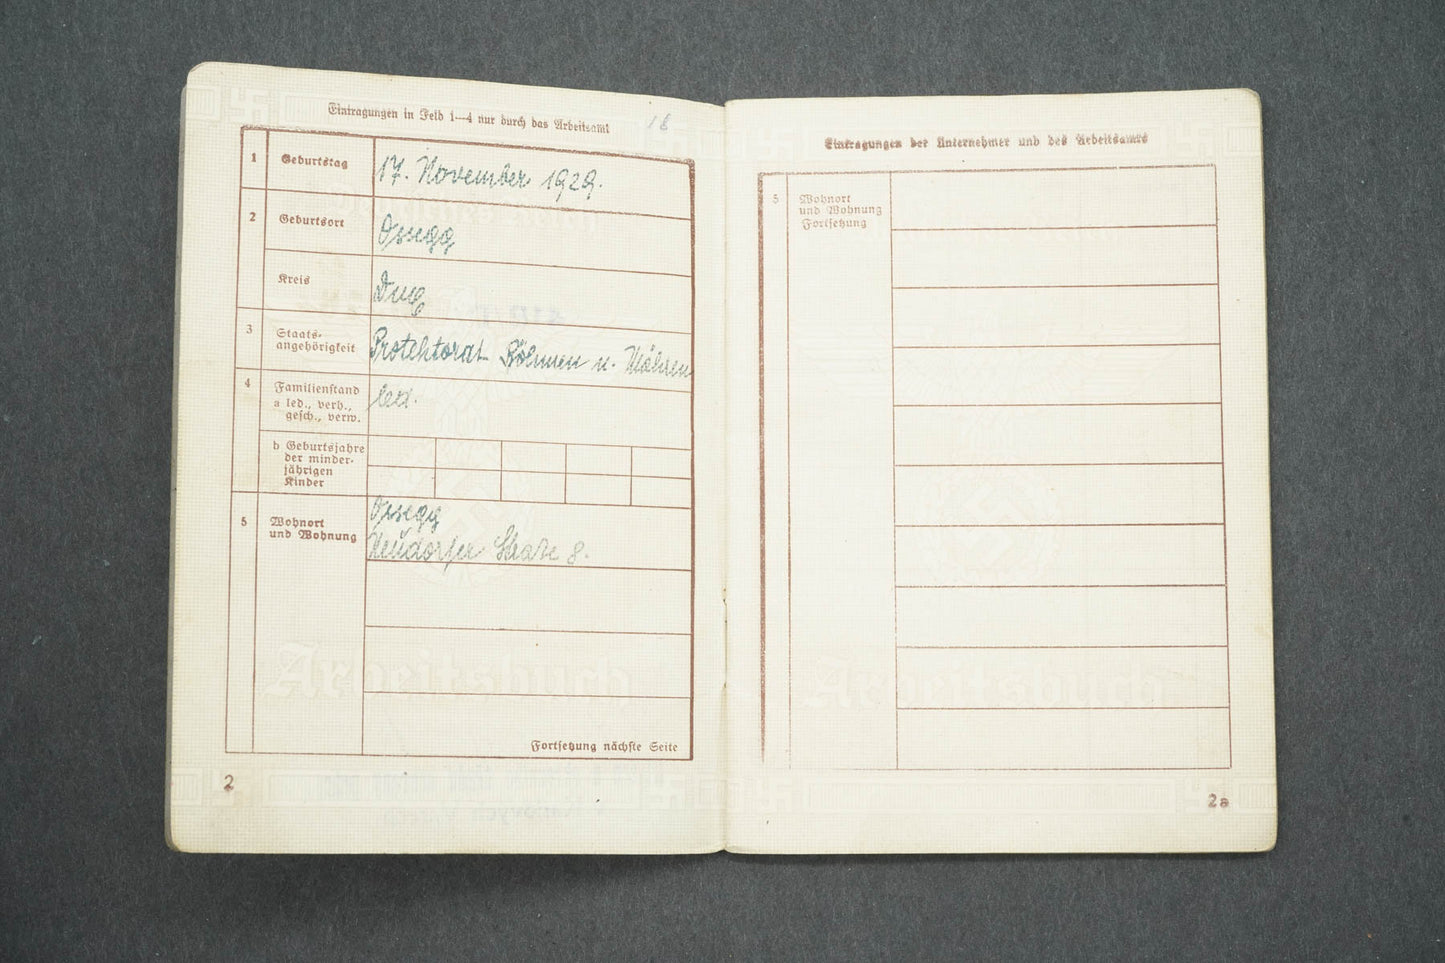 Eintragungen in Feld 1—4 nur durch das Arbeitsamt
18
1 Geburtstag 17. November 1929.
2 Geburtsort Ossegg
Kreis Dux
3 Staats-
angehörigkeit Protektorat Böhmen u. Mähren
4 Familienstand led.
a led., verh.,
gesch., verw.
b Geburtsjahre
der minder-
jährigen
Kinder
5 Wohnort
und Wohnung
Ossegg
Neudorfer Straße 8.
Fortsetzung nächste Seite
Arbeitsbuch
2
Eintragungen der Unternehmer und des Arbeitsamts
5 Wohnort
und Wohnung
Fortsetzung
Arbeitsbuch
2a